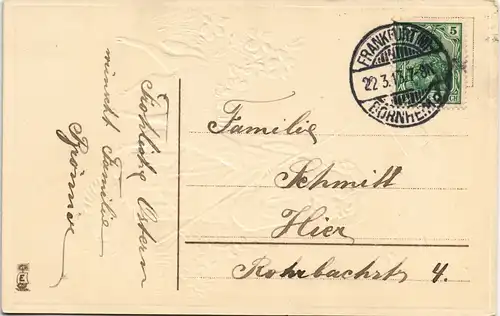 Fröhliche Ostern
wünscht Familie
FRANKFURT
22.3.13.7-8N
BORNHEIM
5
Familie
Schmitt
Hier
Rohrbachstr 4.